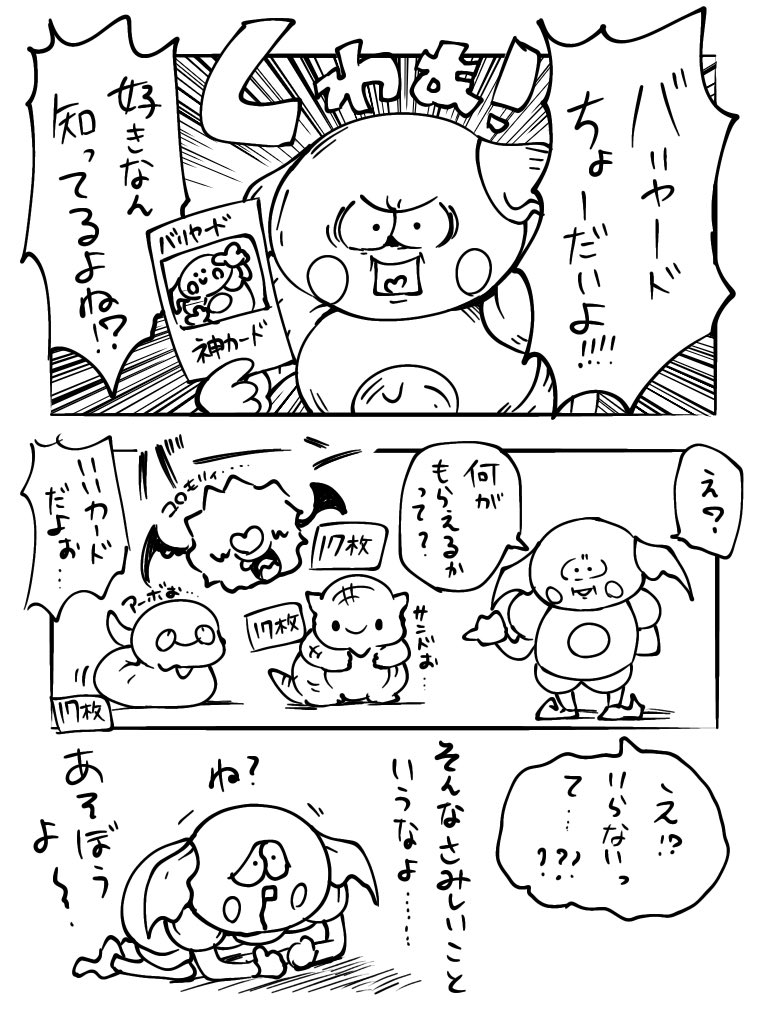 バリヤード
ちょーだいよ!!!!
くわぁ!
好きなん
知ってるよね!?
バリヤード
神カード
え?
何が
もらえるか
って?
サンドぉ…
17枚
17枚
コロモリィ…
アーボぉ…
17枚
いいカード
だよぉ…
え!?
いらないっ
て…??
そんなさみしいこと
いうなよ……
ね?
あそぼう
よ〜、